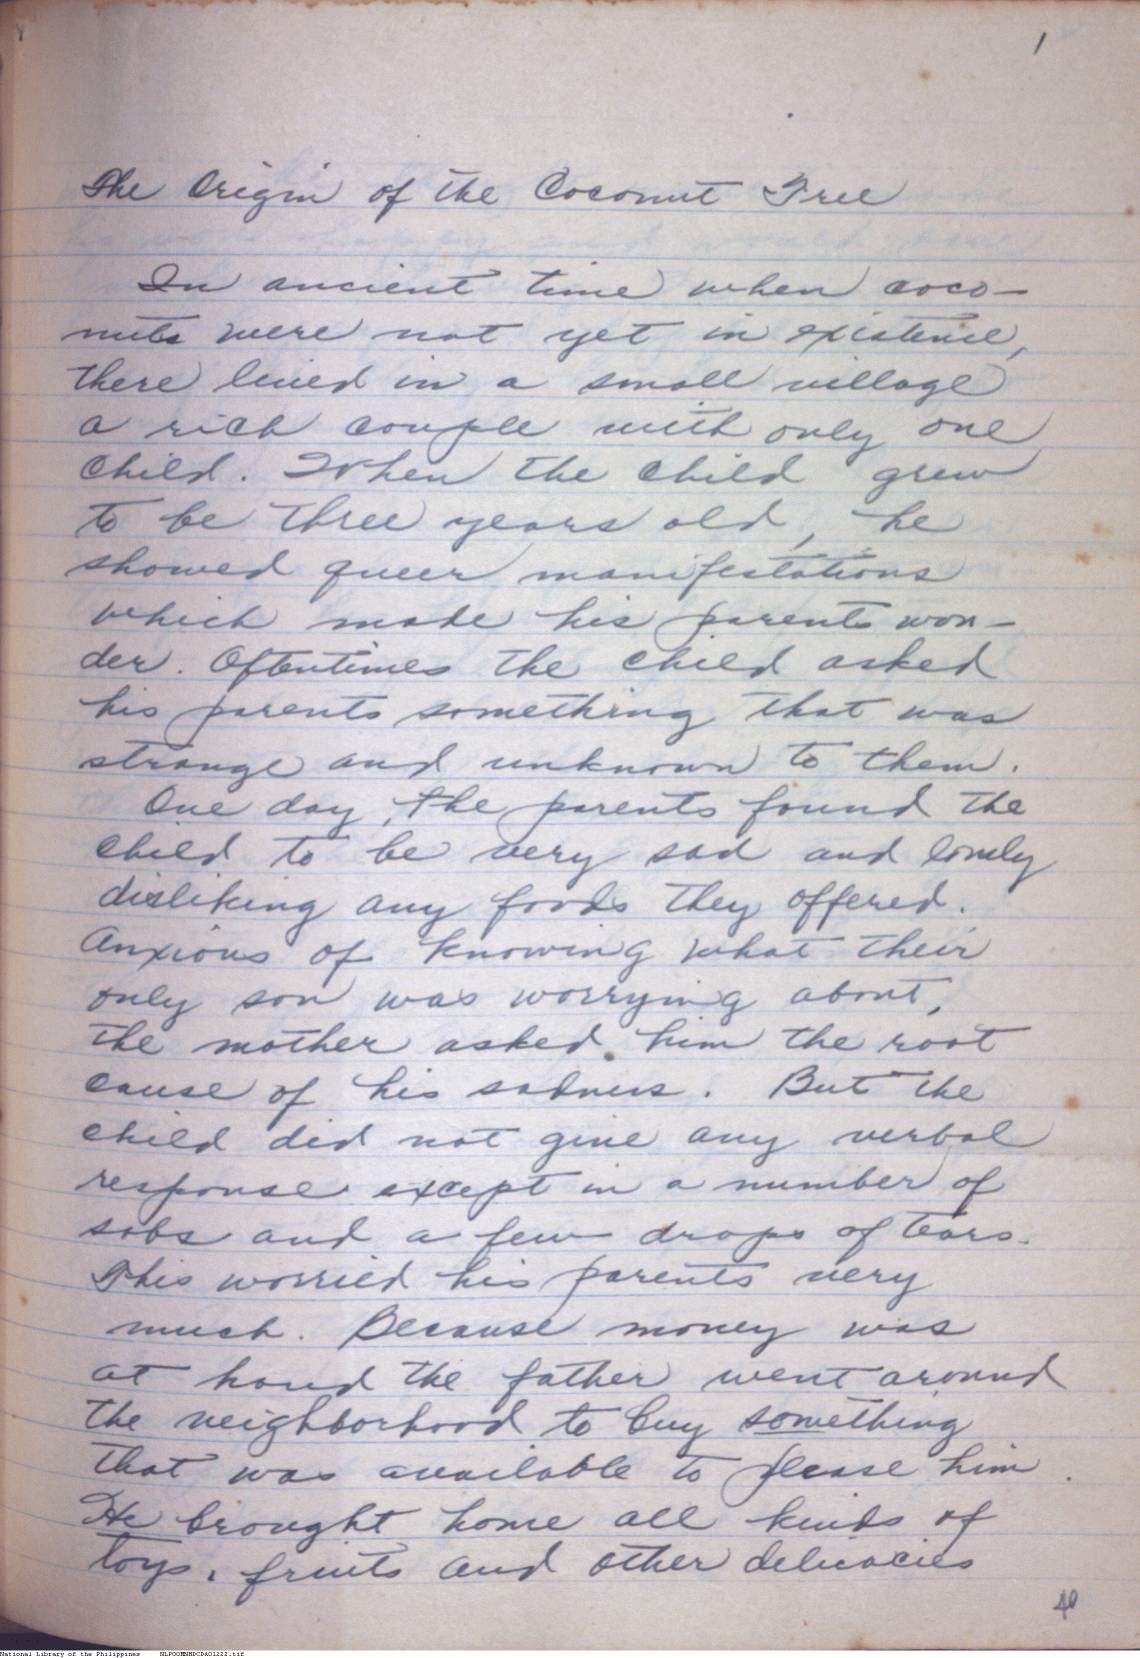 1
The Origin of the Coconut Tree
In ancient time when coco-
nuts were not yet in existence,
there lived in a small village
a rich couple with only one
child. When the child grew
to be three years old, he
showed queer manifestations
which made his parents won-
der. Oftentimes the child asked
his parents something that was
strange and unknown to them.
One day, the parents found the
child to be very sad and lonely
disliking any foods they offered.
Anxious of knowing what their
only son was worrying about,
the mother asked him the root
cause of his sadness. But the
child did not give any verbal
response except in a number of
sobs and a few drops of tears.
This worried his parents very
much. Because money was
at hand the father went around
the neighborhood to buy something
that was available to please him.
He brought home all kinds of
toys, fruits and other delicacies
40
National Library of the Philippines NLPOORNHDCDA01222.tif